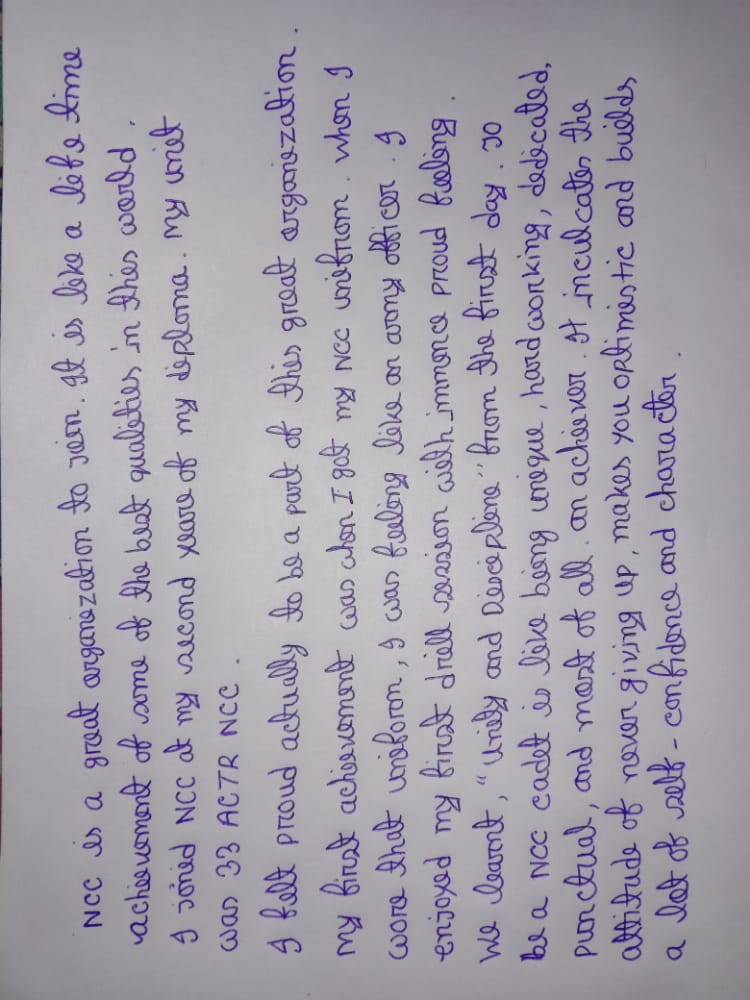 NCC is a great organization to join. It is like a life time
achievement of some of the best qualities in this world.
I joined NCC at my second yeare of my diploma. My unit
was 33 ACTR NCC.
I felt proud actually to be a part of this great organization.
My first achievement was when I got my NCC unifrom. when I
wore that uniform, I was feeling like an army officer. I
enjoyed my first drill session with immence proud feeling.
We learnt, "Unity and Discipline" from the first day. So
be a NCC cadet is like being unique, hardworking, dedicated,
punctual, and most of all. an achiever. It inculcates the
attitude of never giving up, makes you optimistic and builds
a lot of self-confidence and character.